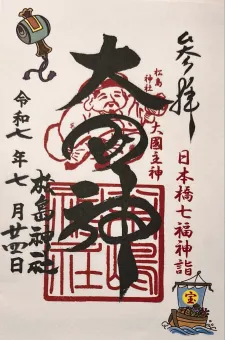 奉拝
日本橋七福神詣
松島神社
大國主神
大国神
松島神社
令和七年七月廿四日
宝